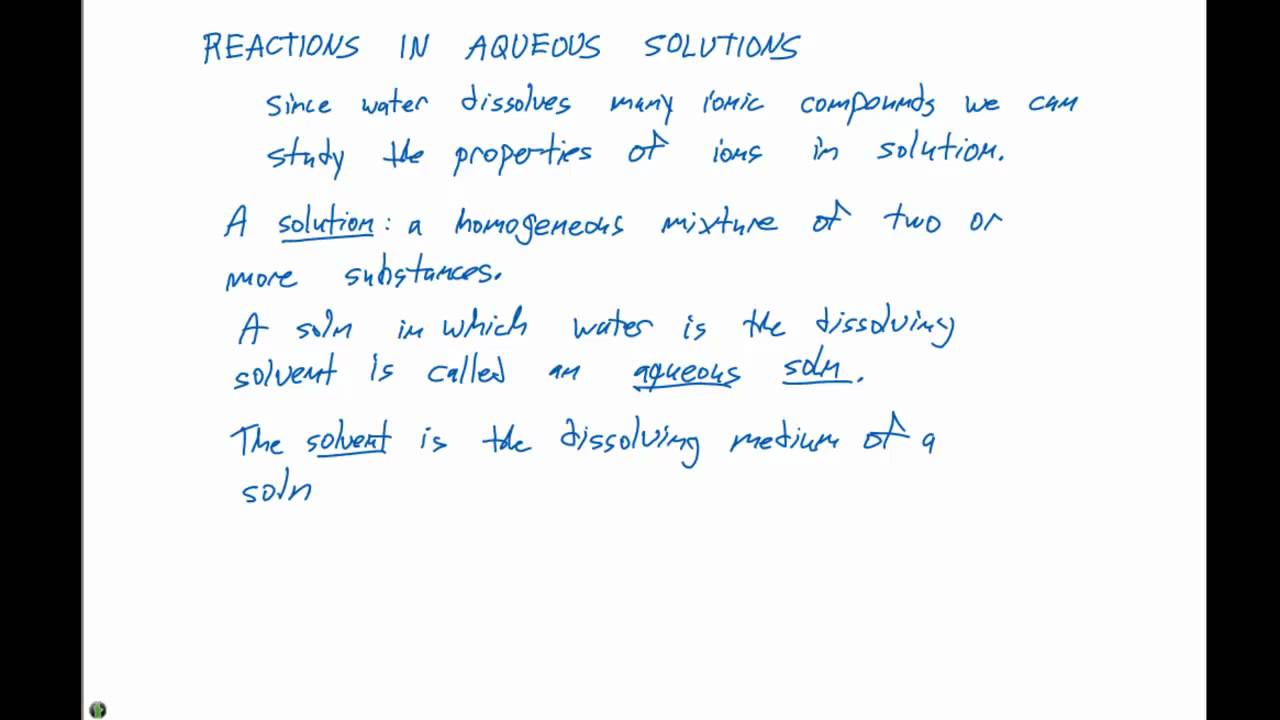 REACTIONS IN AQUEOUS SOLUTIONS
Since water dissolves many ionic compounds we can
study the properties of ions in solution.
A solution: a homogeneous mixture of two or
more substances.
A soln in which water is the dissolving
solvent is called an aqueous soln.
The solvent is the dissolving medium of a
soln